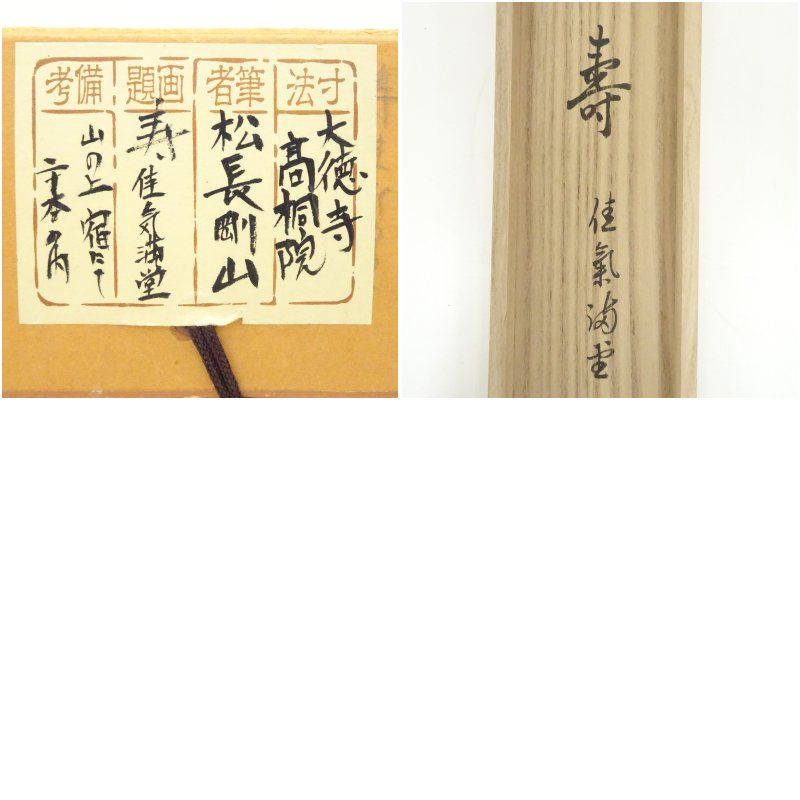 寸法
大徳寺
高桐院
筆者
松長剛山
画題
寿 佳気満堂
備考
山の上宿にて
二十本の内
壽
佳氣満堂